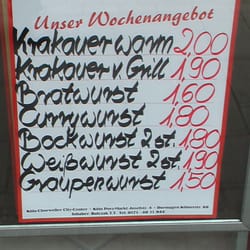 Unser Wochenangebot
Krakauer warm 2,00
Krakauer v. Grill 1,90
Bratwurst 1,60
Currywurst 1,80
Bockwurst 2 st. 1,80
Weißwurst 2 st. 1,90
Grauperwurst 1,50
Köln-Chorweiler City-Center